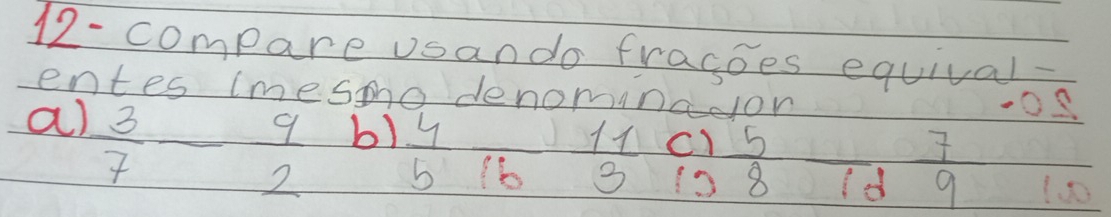 12- compare usando frações equival-
entes (mesmo denominador
a) 3/7 __ 9/2 b) 4/5 __ 11/3 c) 5/8 __ 7/9